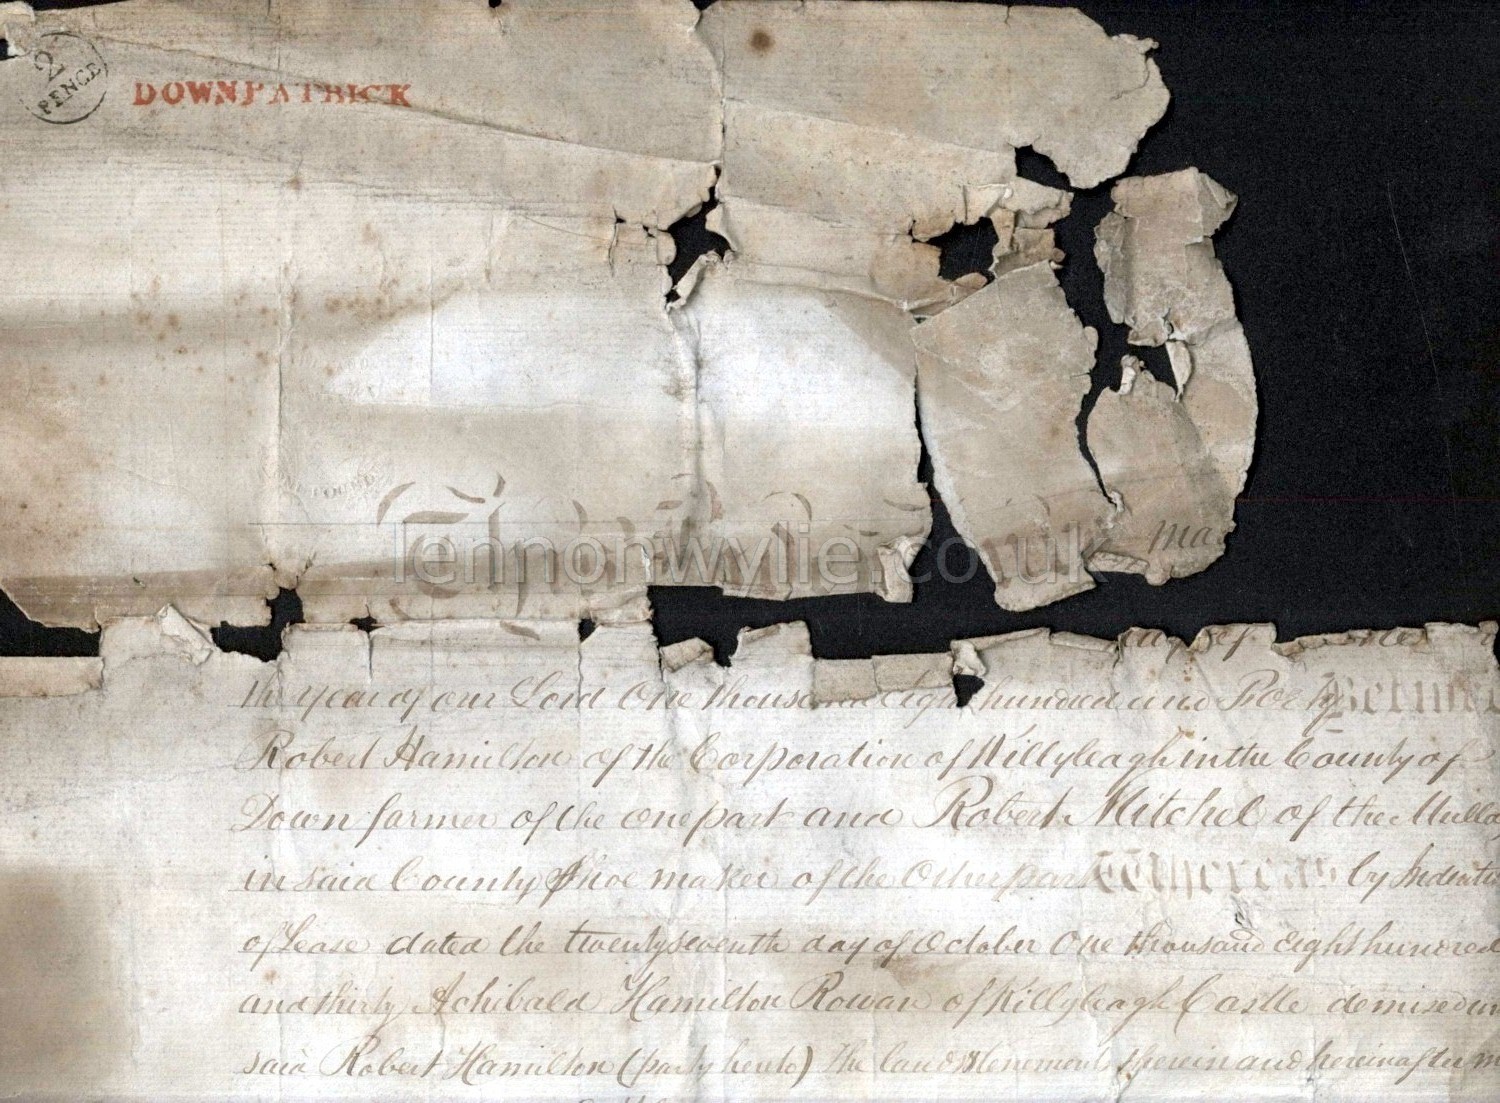 2 PENCE
DOWNPATRICK
POUND
lennonwylie.co.uk
ma
the year of our Lord One thousand eight hundred and Forty Between
Robert Hamilton of the Corporation of Killyleagh in the County of
Down farmer of the one part and Robert Mitchel of the Mulla
in said County Shoe maker of the Other part Whereas by Indentu
of Lease dated the twenty seventh day of October One thousand Eight hundred
and thirty Achibald Hamilton Rowan of Killyleagh Castle demised un
said Robert Hamilton (party hereto) The land & tenements therein and hereinafter m